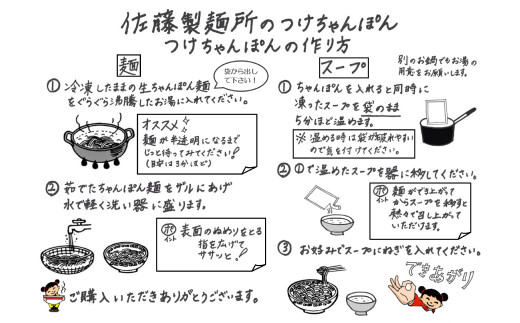 佐藤製麺所のつけちゃんぽん
つけちゃんぽんの作り方
麺
① 冷凍したままの生ちゃんぽん麺
をぐらぐら沸騰したお湯に入れてください。
袋から出し
て下さい!
オススメ
麺が半透明になるまで
じっと待ってみてください!
(目安は3分ほど)
② 茹でたちゃんぽん麺をザルにあげ
水で軽く洗い器に盛ります。
ポイント
表面のぬめりをとる
指を広げて
ササッと!
ご購入いただきありがとうございます。
スープ
別のお鍋でもお湯の
用意をお願いします。
① ちゃんぽんを入れると同時に
凍ったスープを袋のまま
5分ほど温めます。
※温める時は袋が破れやすい
ので気を付けてください。
② ①で温めたスープを器に移してください。
ポイント
麺ができ上がって
からスープを移すと
熱々で召し上がって
いただけます。
③ お好みでスープにねぎを入れてください。
できあがり